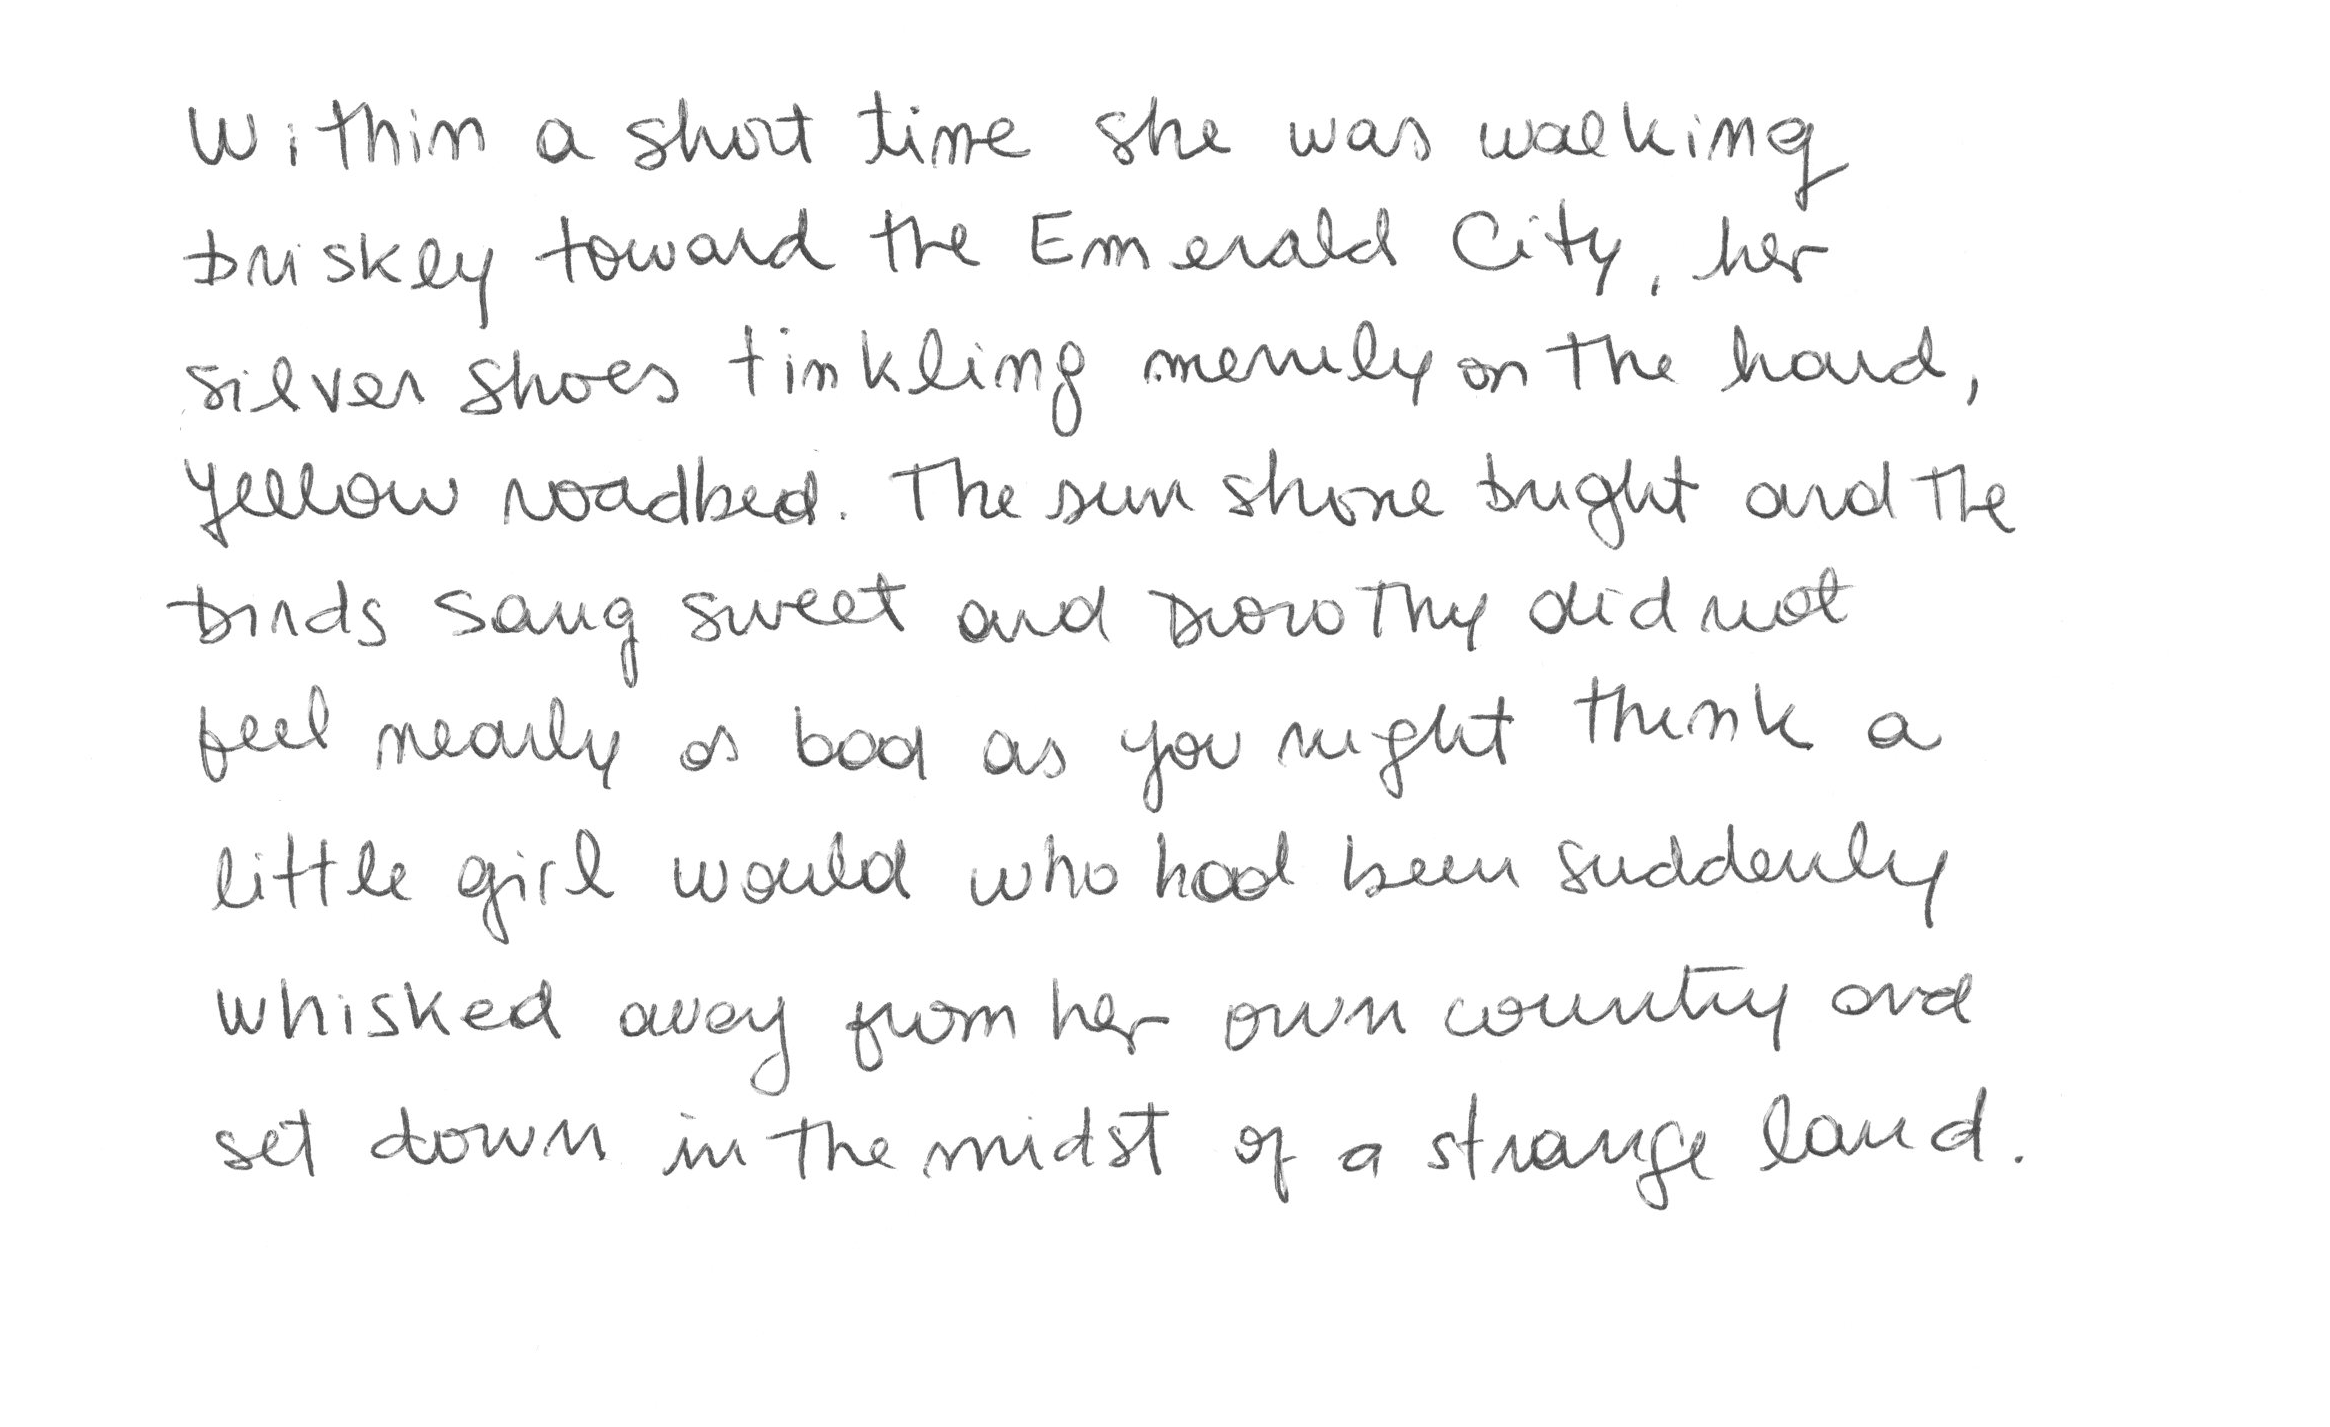 Within a short time she was walking
briskly toward the Emerald City, her
silver shoes tinkling merrily on the hard,
yellow roadbed. The sun shone bright and the
birds sang sweet and Dorothy did not
feel nearly as bad as you might think a
little girl would who had been suddenly
whisked away from her own country and
set down in the midst of a strange land.